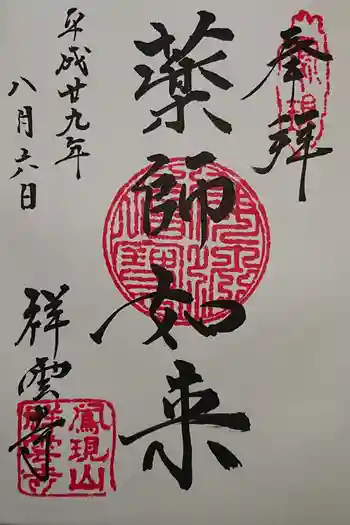 奉拜
薬師如来
平成廿九年
八月六日
祥雲寺
鳳現山
祥雲寺